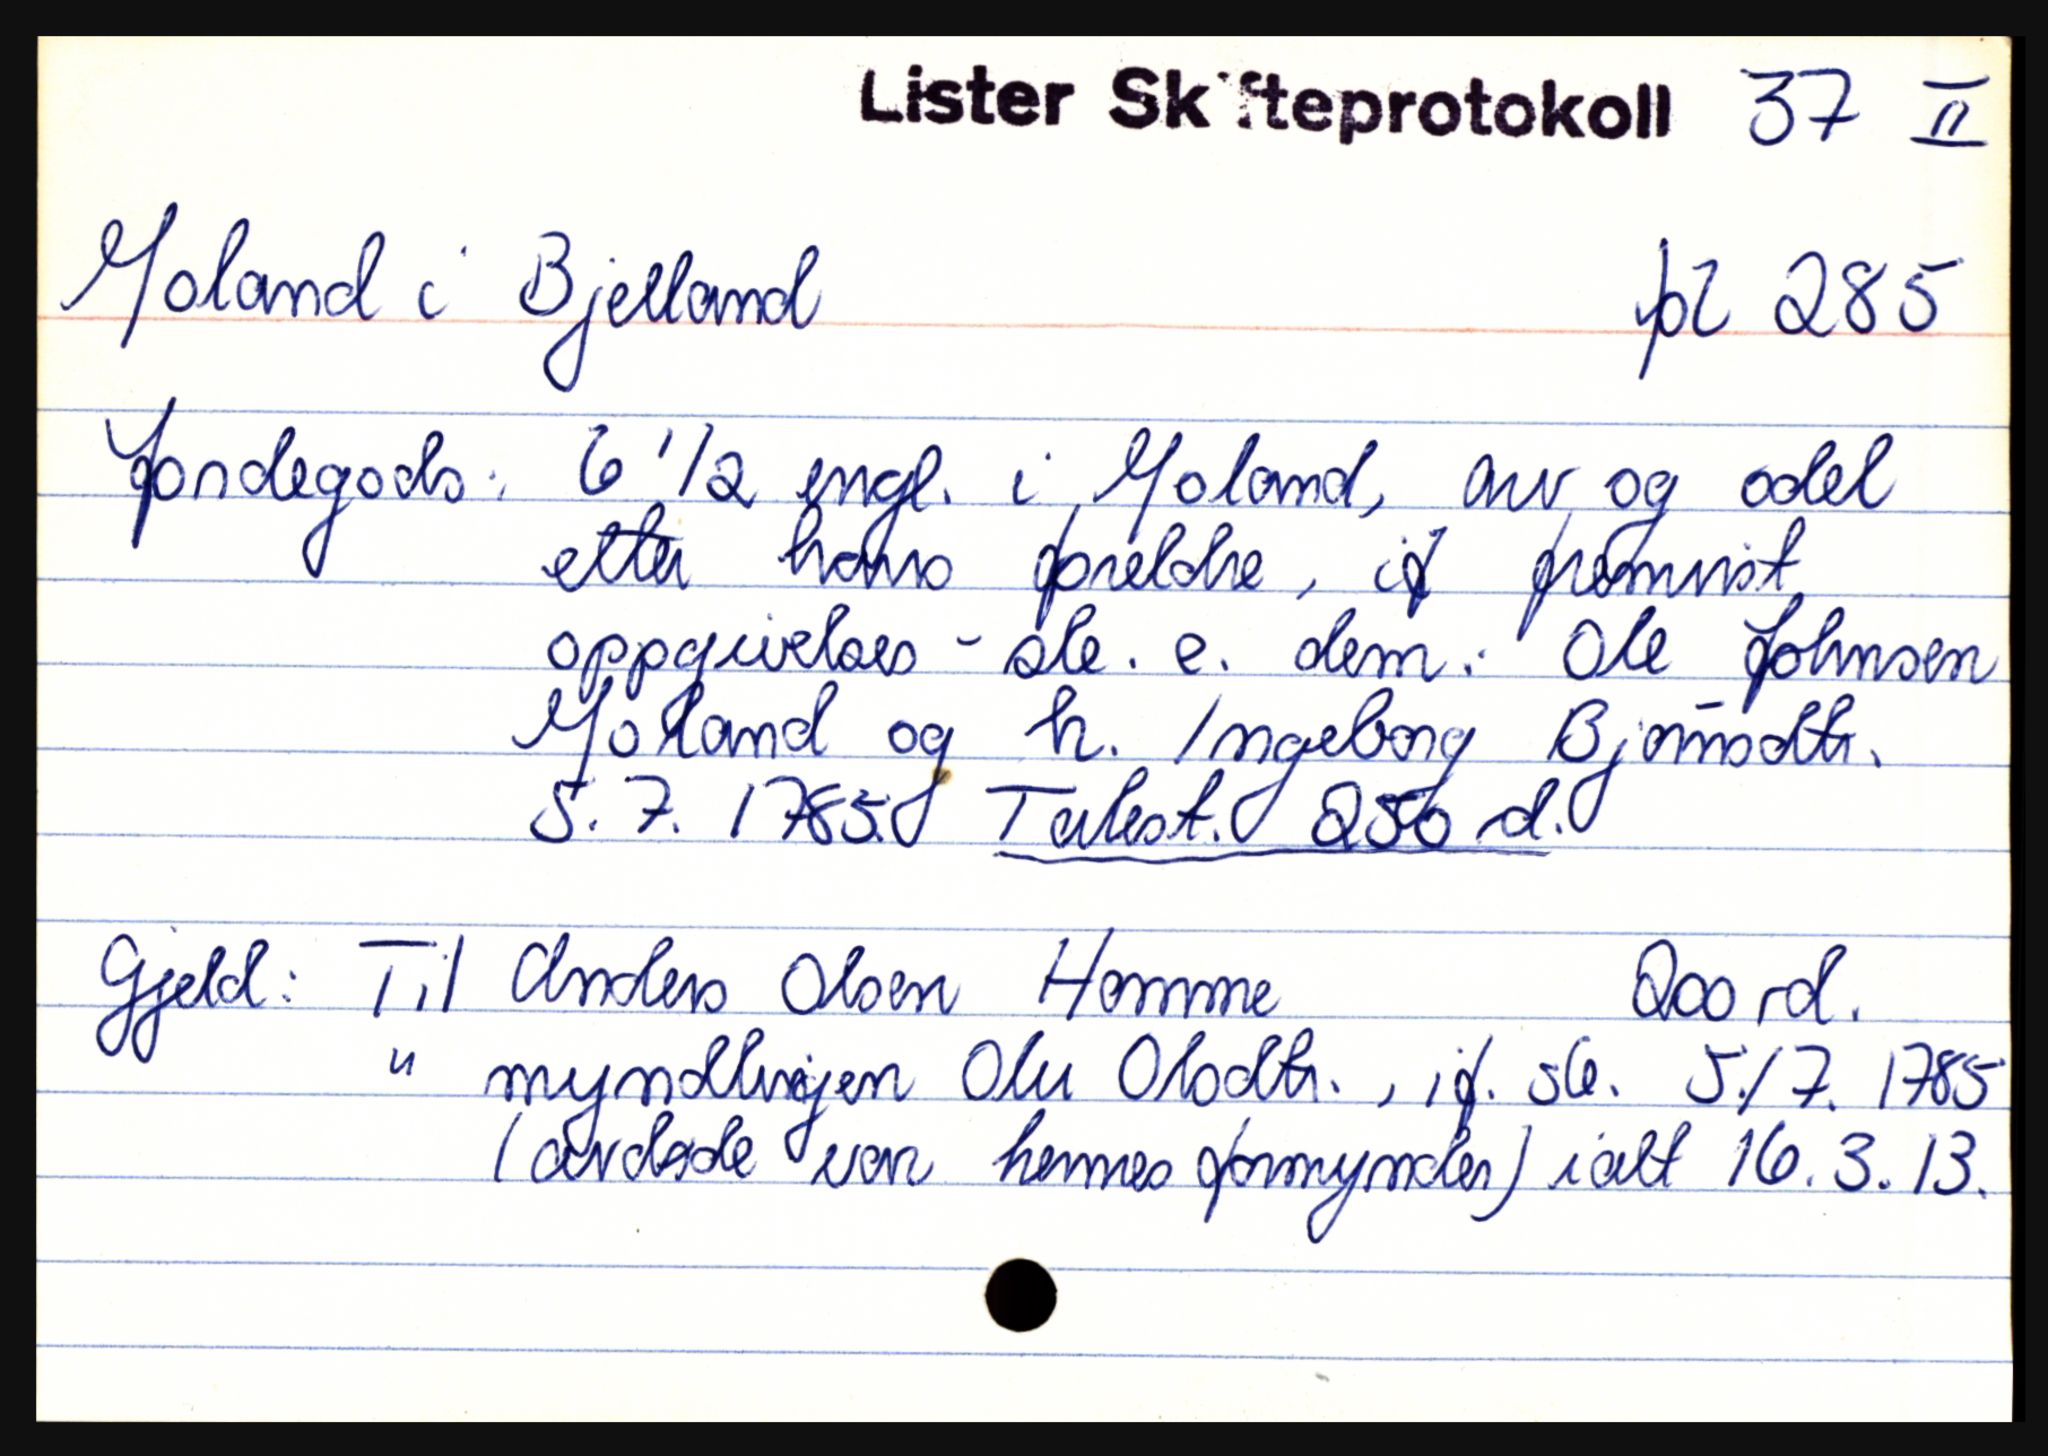 Lister Skifteprotokoll 37 II
Moland i Bjelland pl 285
Jordegods: 6 1/2 engl. i Moland, arv og odel
etter hans foreldre, if fremvist
oppgivelses - ske. e. dem: Ole Johnsen
Moland og h. Ingeborg Bjørnsdtr.
5.7. 1785. Takst. 250 rd.
Gjeld: Til Anders Olsen Homme 200 rd.
" myndlingen Olu Olsdtr., if. sk. 5/7. 1785
(avdøde var hennes formynder) ialt 16.3.13.